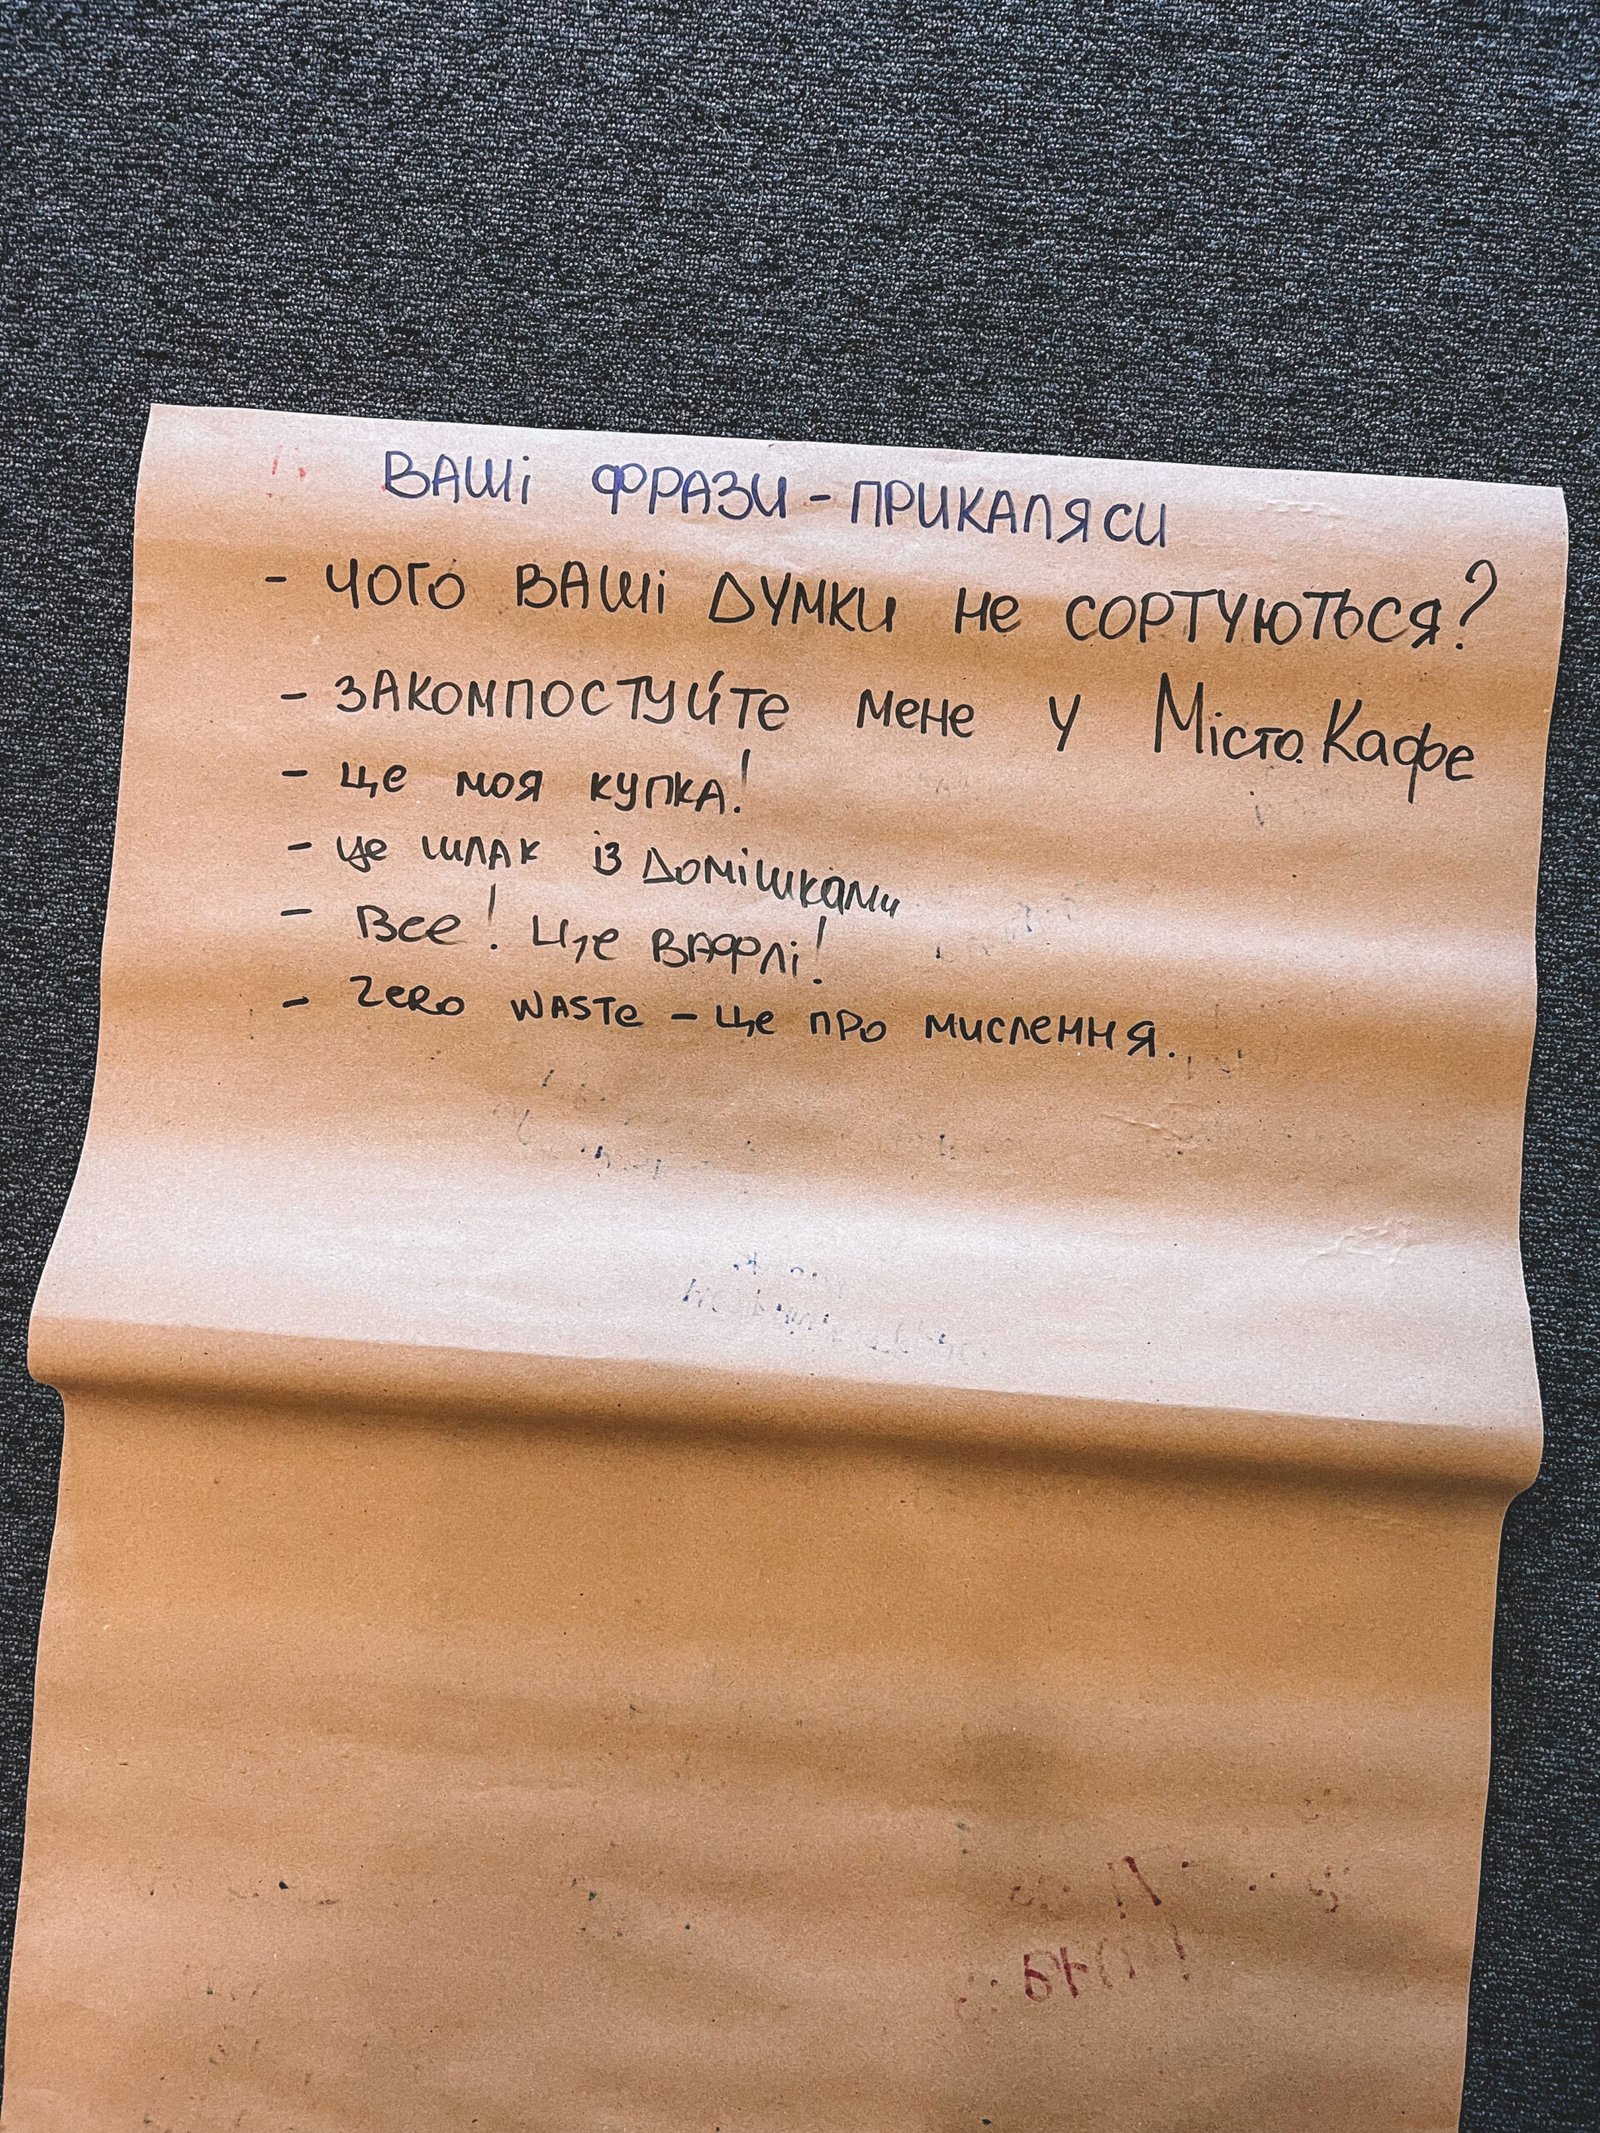 ВАШІ ФРАЗИ - ПРИКАЛЯСИ
- ЧОГО ВАШІ ДУМКИ НЕ СОРТУЮТЬСЯ?
- ЗАКОМПОСТУЙТЕ МЕНЕ У Місто.Кафе
- ЦЕ МОЯ КУПКА!
- ЦЕ ШЛАК ІЗ ДОМІШКАМИ
- ВСЕ! ЦЕ ВАФЛІ!
- ZERO WASTE - ЦЕ ПРО МИСЛЕННЯ.